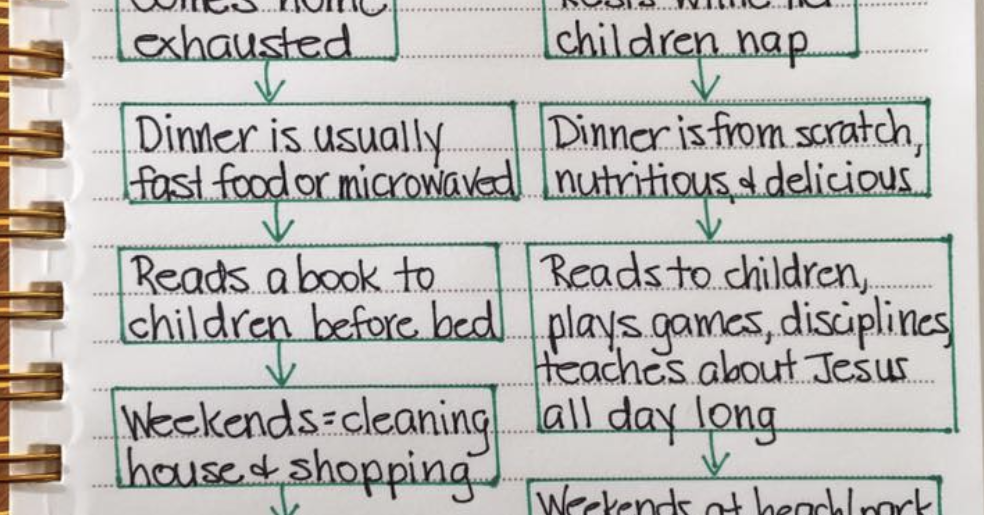 exhausted
Dinner is usually
fast food or microwaved
Reads a book to
children before bed
Weekends=cleaning
house & shopping
children nap
Dinner is from scratch,
nutritious & delicious
Reads to children,
plays games, disciplines,
teaches about Jesus
all day long
Weekends at beach/park